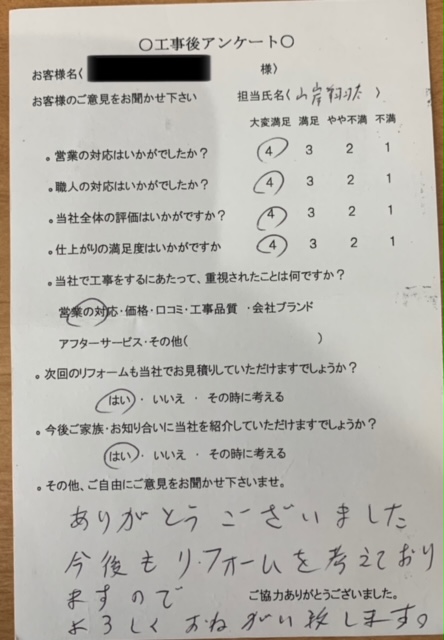 〇工事後アンケート〇
お客様名( 様)
お客様のご意見をお聞かせ下さい 担当氏名(山岸 )
大変満足 満足 やや不満 不満
。営業の対応はいかがでしたか? 4 3 2 1
。職人の対応はいかがでしたか? 4 3 2 1
。当社全体の評価はいかがですか? 4 3 2 1
。仕上がりの満足度はいかがですか 4 3 2 1
。当社で工事をするにあたって、重視されたことは何ですか?
営業の対応・価格・口コミ・工事品質 ・会社ブランド
アフターサービス・その他( )
。次回のリフォームも当社でお見積りしていただけますでしょうか?
はい ・ いいえ ・ その時に考える
。今後ご家族・お知り合いに当社を紹介していただけますでしょうか?
はい ・ いいえ ・ その時に考える
。その他、ご自由にご意見をお聞かせ下さいませ。
ありがとうございました
今後もリフォームを考えており
ますので
ご協力ありがとうございました。
よろしくおねがい致します。